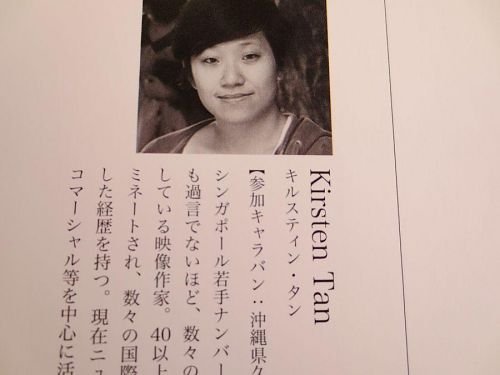 Kirsten Tan
キルスティン・タン
【参加キャラバン：沖縄県久
シンガポール若手ナンバー
も過言でないほど、数々の
している映像作家。40以上
ミネートされ、数々の国際
した経歴を持つ。現在ニュ
コマーシャル等を中心に活